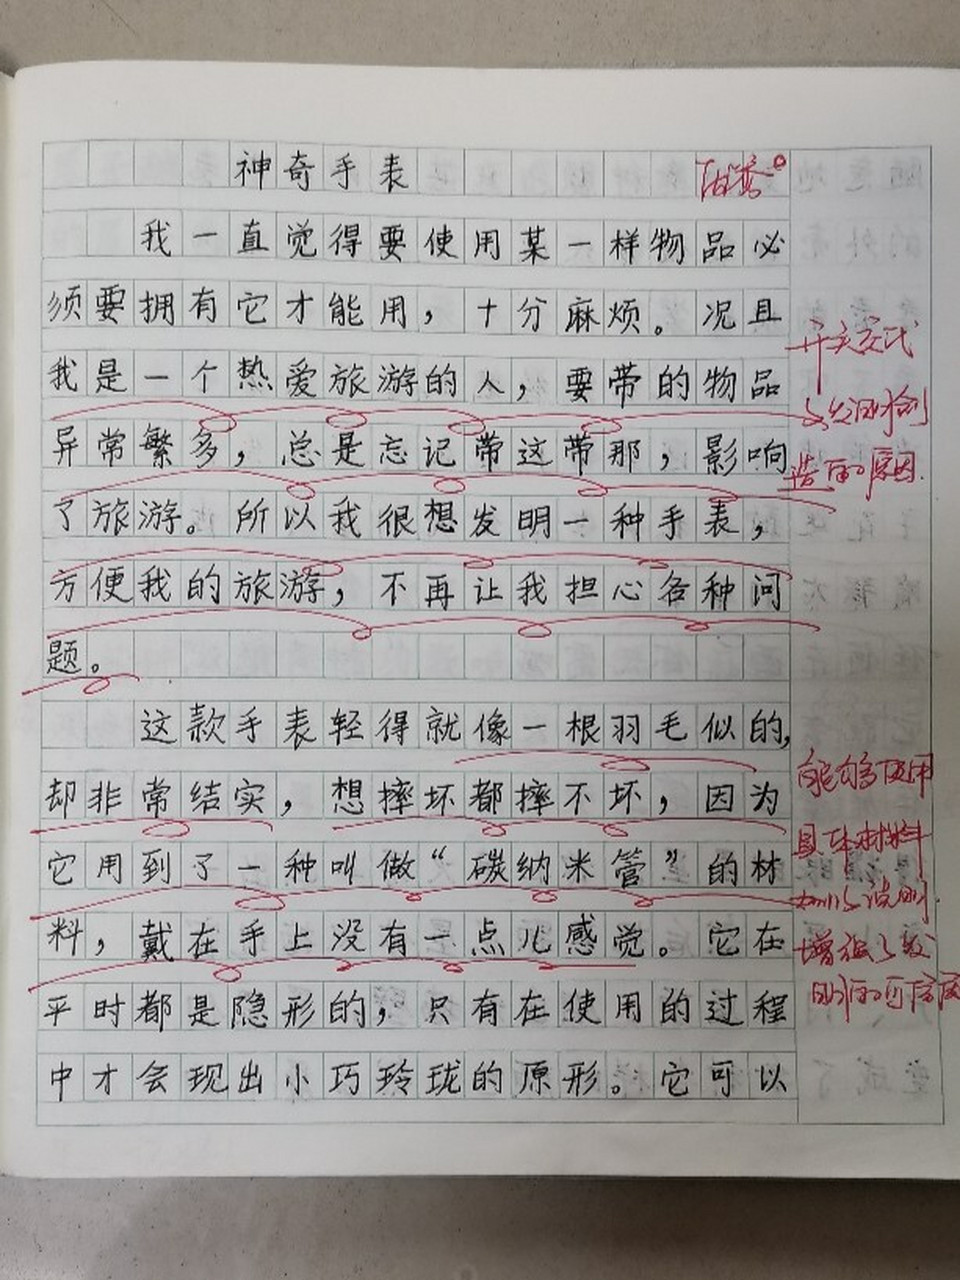 神奇手表
我一直觉得要使用某一样物品必
须要拥有它才能用，十分麻烦。况且
我是一个热爱旅游的人，要带的物品
异常繁多，总是忘记带这带那，影响
了旅游。所以我很想发明一种手表，
方便我的旅游，不再让我担心各种问
题。
这款手表轻得就像一根羽毛似的，
却非常结实，想摔坏都摔不坏，因为
它用到了一种叫做“碳纳米管”的材
料，戴在手上没有一点儿感觉。它在
平时都是隐形的，只有在使用的过程
中才会现出小巧玲珑的原形。它可以
开头交代
发明创
造的原因.
能够使用
具体材料
加以说明
增强了发
明的可信度